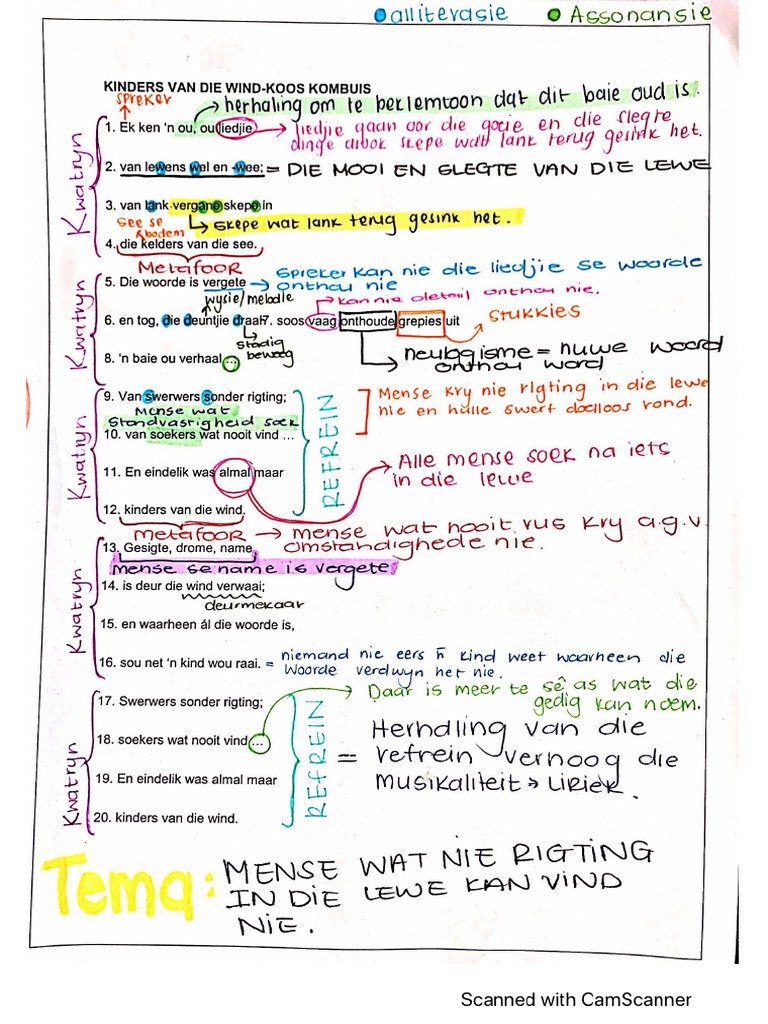 alliterasie Assonansie
KINDERS VAN DIE WIND-KOOS KOMBUIS
spreker
herhaling om te beklemtoon dat dit baie oud is.
Kwatryn
1. Ek ken 'n ou, ou liedjie
liedjie gaan oor die goeie en die slegte
dinge
skepe wat lank terug gesink het.
2. van lewens wel en -wee;
= DIE MOOI EN SLEGTE VAN DIE LEWE
3. van lank vergane skepe in
skepe wat lank terug gesink het.
see se
bodem
4. die kelders van die see.
Metafoor
Kwatryn
5. Die woorde is vergete
spreker kan nie die liedjie se woorde
onthou nie
wysie/melodie
kan nie detail onthou nie.
6. en tog, die deuntjie draal 7. soos vaag onthoude grepies uit
stukkies
stadig
beweeg
neulogisme = nuwe woord
onthou word
8. 'n baie ou verhaal ...
Kwatryn
9. Van swerwers sonder rigting;
Mense wat
standvastigheid soek
10. van soekers wat nooit vind ...
REFREIN
Mense kry nie rigting in die lewe
nie en hulle swerf doelloos rond.
11. En eindelik was almal maar
Alle mense soek na iets
in die lewe
12. kinders van die wind.
Metafoor
mense wat nooit rus kry a.g.v
omstandighede nie.
Kwatryn
13. Gesigte, drome, name,
mense se name is vergete
14. is deur die wind verwaai;
deurmekaar
15. en waarheen ál die woorde is,
16. sou net 'n kind wou raai.
= niemand nie eers 'n kind weet waarheen die
woorde verdwyn het nie.
Kwatryn
17. Swerwers sonder rigting;
Daar is meer te sê as wat die
gedig kan noem.
18. soekers wat nooit vind ...
REFREIN
= Herhaling van die
refrein verhoog die
musikaliteit > Liriek.
19. En eindelik was almal maar
20. kinders van die wind.
Tema:
MENSE WAT NIE RIGTING
IN DIE LEWE KAN VIND
NIE.
Scanned with CamScanner